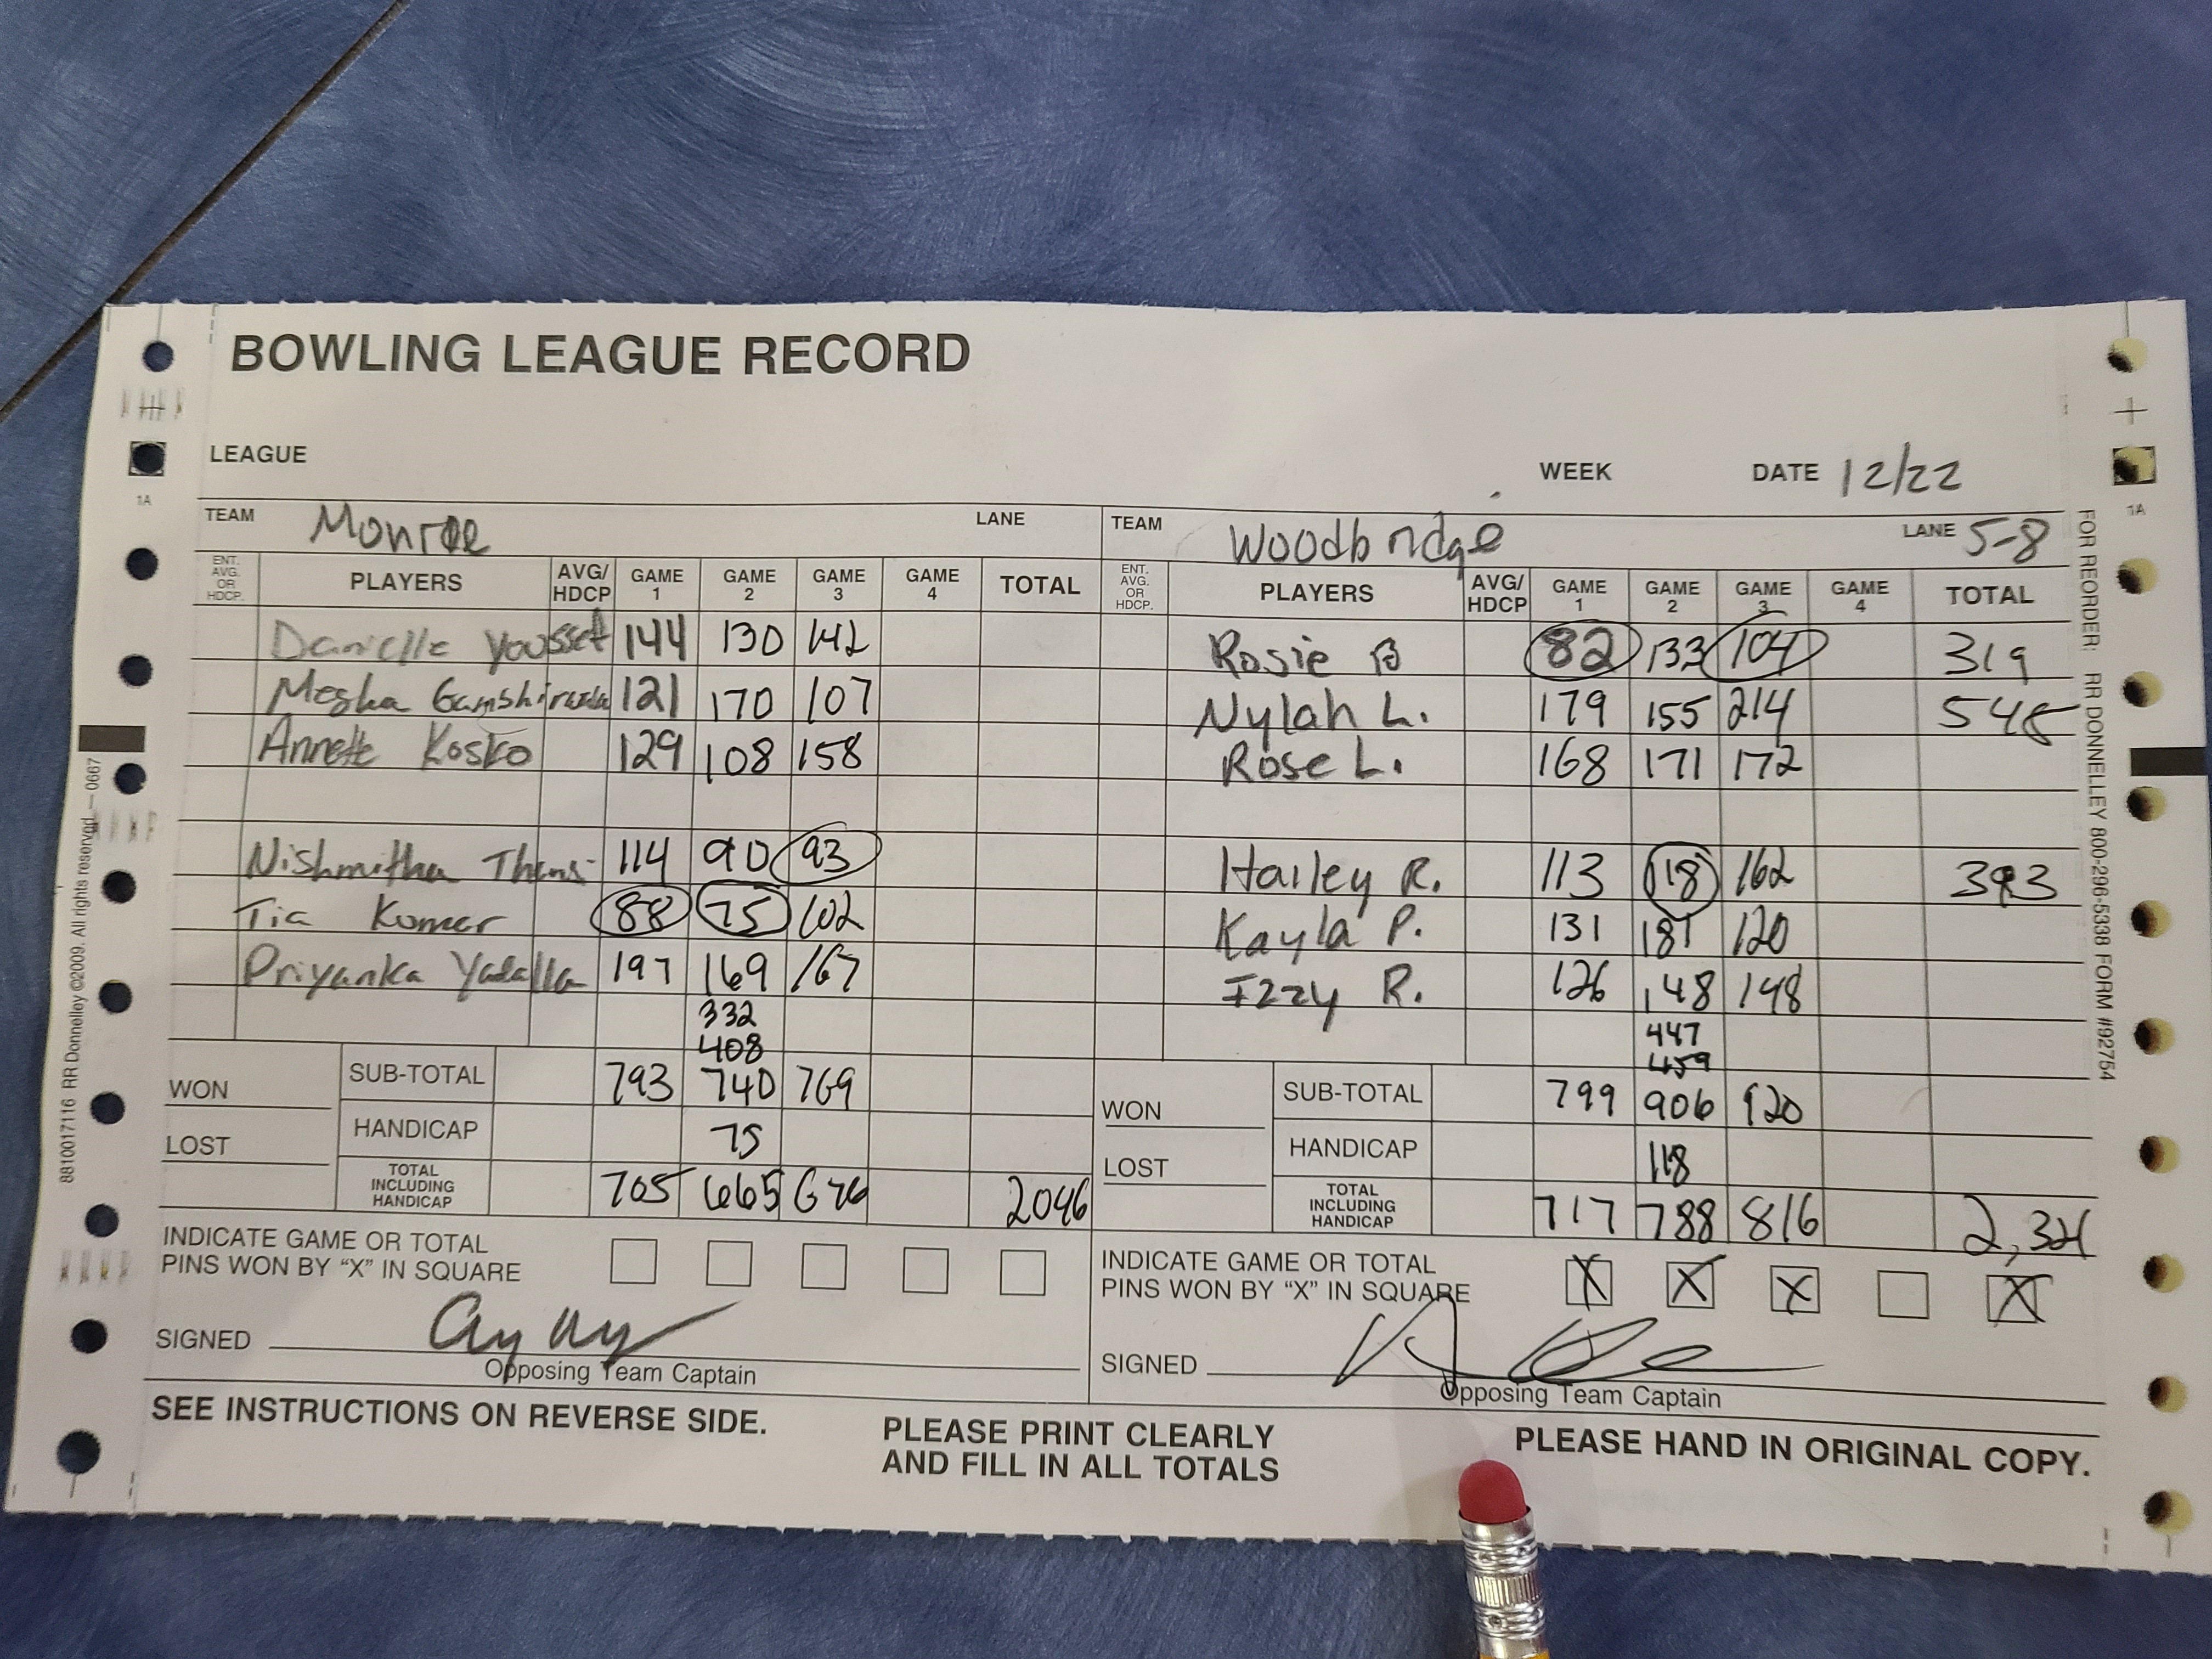 BOWLING LEAGUE RECORD
LEAGUE WEEK DATE 12/22
TEAM Monroe LANE
ENT. AVG. OR HDCP. PLAYERS AVG/HDCP GAME 1 GAME 2 GAME 3 GAME 4 TOTAL
Danielle Yousset 144 130 142
Megha 121 170 107
Annette Kosko 129 108 158
Nishmitha 114 90 93
Tia Kumer 88 75 102
Priyanka Yadalla 197 169 167
332
408
WON SUB-TOTAL 793 740 769
HANDICAP 75
LOST
TOTAL INCLUDING HANDICAP 705 665 676 2046
INDICATE GAME OR TOTAL
PINS WON BY "X" IN SQUARE
SIGNED
Opposing Team Captain
TEAM Woodbridge LANE 5-8
ENT. AVG. OR HDCP. PLAYERS AVG/HDCP GAME 1 GAME 2 GAME 3 GAME 4 TOTAL
Rosie B 82 133 104 319
Nylah L. 179 155 214 548
Rose L. 168 171 172
Hailey R. 113 118 162 393
Kayla P. 131 181 120
Izzy R. 126 148 148
447
459
WON SUB-TOTAL 799 906 920
HANDICAP 118
LOST
TOTAL INCLUDING HANDICAP 717 788 816
INDICATE GAME OR TOTAL
PINS WON BY "X" IN SQUARE X X X X
SIGNED
Opposing Team Captain
SEE INSTRUCTIONS ON REVERSE SIDE.
PLEASE PRINT CLEARLY
AND FILL IN ALL TOTALS
PLEASE HAND IN ORIGINAL COPY.
8810017116 RR Donnelley ©2009. All rights reserved. — 0667
FOR REORDER: RR DONNELLEY 800-296-5338 FORM #92754
1A
1A